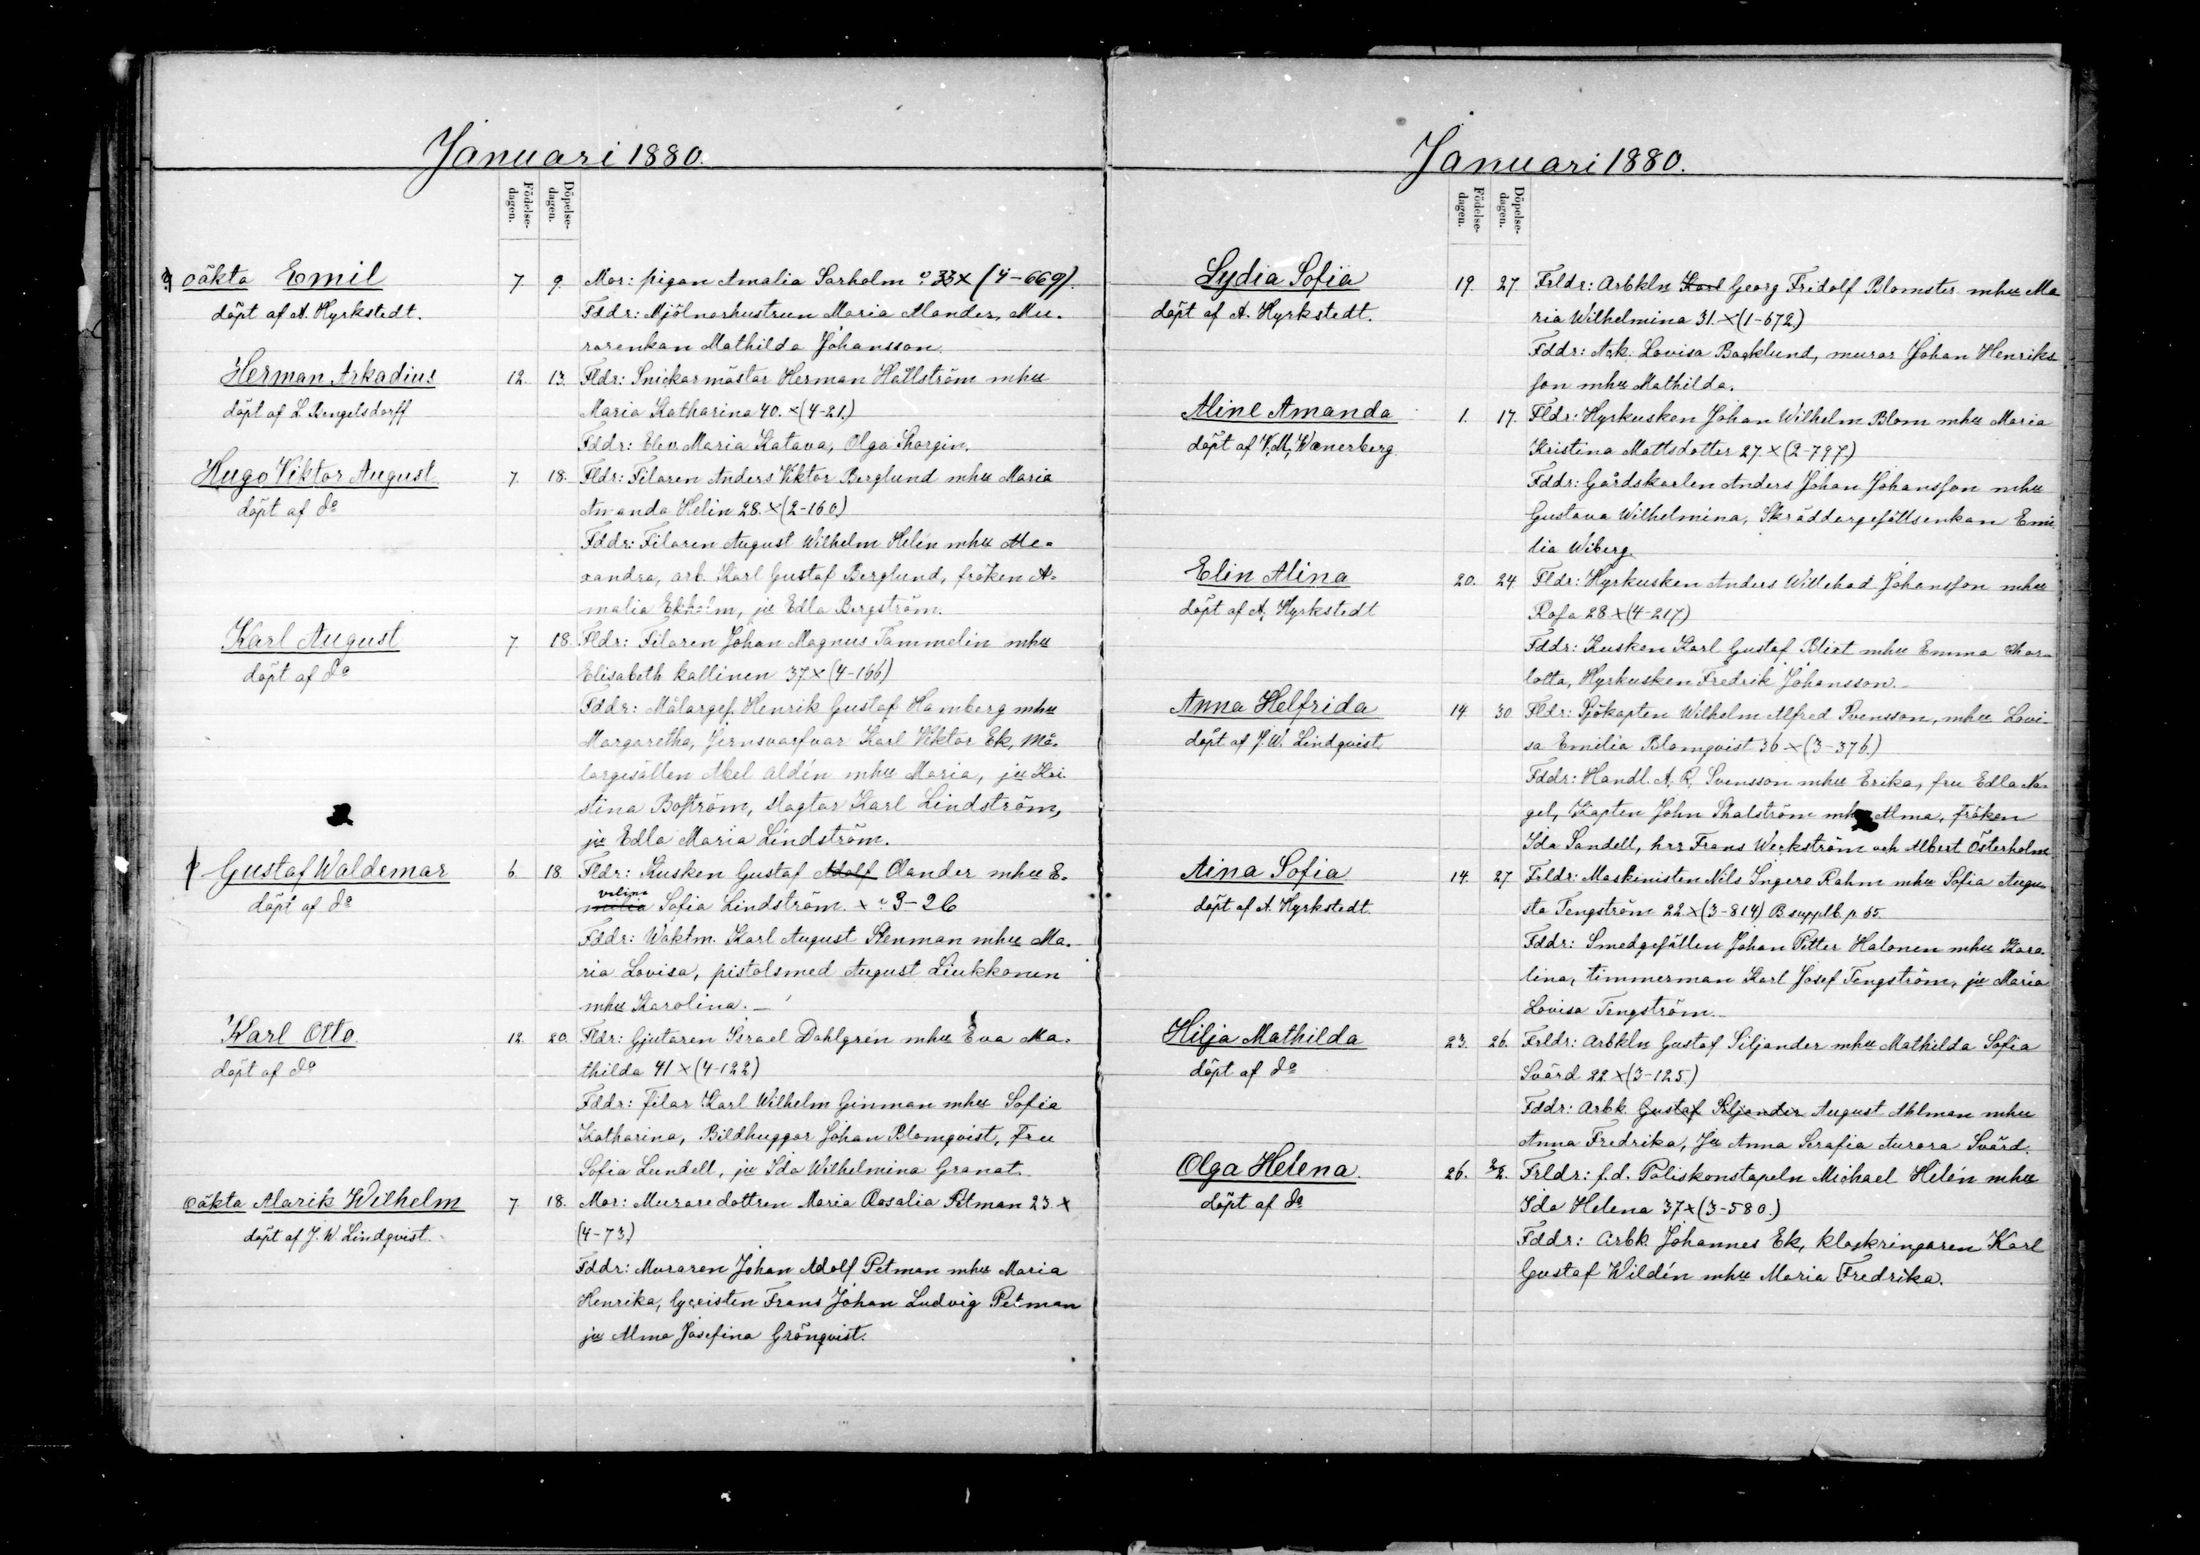 Januari 1880.
Födelse-dagen.
Döpelse-dagen.
oäkta Emil
döpt af A. Hyrkstedt.
7 9 Mor: pigan Amalia Sarholm 33 x (4-669).
Fddr: Mjölnarhustrun Maria Mander, Mu-
rarenkan Mathilda Johansson.
Herman Arkadius
döpt af L. Bengelsdorff
12. 13. Fldr: Snickarmästar Herman Hallström mhu
Maria Katharina 40. x (4-21.)
Fddr: Elev Maria Katava, Olga Shorgin.
Hugo Viktor August
döpt af do
7. 18. Fldr: Filaren Anders Viktor Berglund mhu Maria
Amanda Helin 28. x (2-160.)
Fddr: Filaren August Wilhelm Helén mhu Ale-
xandra, arb. Karl Gustaf Berglund, fröken A-
malia Ekholm, ju Edla Bergström.
Karl August
döpt af do
7. 18. Fldr: Filaren Johan Magnus Tammelin mhu
Elisabeth Kallinen 37 x (4-166)
Fddr: Målargef. Henrik Gustaf Hamberg mhu
Margaretha, Jernsvarfvar Karl Viktor Ek, Må-
largesällen Axel Aldén mhu Maria, ju Kri-
stina Boström, slagtar Karl Lindström,
ju Edla Maria Lindström.
Gustaf Waldemar
döpt af do
6. 18. Fldr: Kusken Gustaf Adolf Olander mhu E-
velina
milia Sofia Lindström. x 3-26
Fddr: Waktm. Karl August Stenman mhu Ma-
ria Lovisa, pistolsmed August Liukkonen
mhu Karolina.
Karl Otto
döpt af do
12. 20. Fldr: Gjutaren Israel Dahlgrén mhu Eva Ma-
thilda 41 x (4-122)
Fddr: filar Karl Wilhelm Ginman mhu Sofia
Katharina, Bildhuggar Johan Blomqvist, Fru
Sofia Lundell, ju Ida Wilhelmina Granat.
oäkta Alarik Wilhelm
döpt af J. W. Lindqvist.
7. 18. Mor: Muraredottren Maria Rosalia Petman 23. x
(4-73.)
Fddr: Muraren Johan Adolf Petman mhu Maria
Henrika, lyceisten Frans Johan Ludvig Petman
ju Alma Josefina Grönqvist.
Januari 1880.
Födelse-dagen.
Döpelse-dagen.
Lydia Sofia
döpt af A. Hyrkstedt.
19. 27. Frldr: Arbkln Karl Georg Fridolf Blomster mhu Ma
ria Wilhelmina 31. x (1-672.)
Fddr: Ask. Lovisa Backlund, murar Johan Henriks
son mhu Mathilda.
Aline Amanda
döpt af V. M. Wænerberg
1. 17. Fldr: Hyrkusken Johan Wilhelm Blom mhu Maria
Kristina Mattsdotter 27 x (2-797.)
Fddr: Gårdskarlen Anders Johan Johansson mhu
Gustava Wilhelmina, Skräddergesällsenkan Emi
lia Wiberg
Elin Alina
döpt af A. Hyrkstedt
20. 24 Fldr: Hyrkusken Anders Willehad Johansson mhu
Rosa 28 x (4-217)
Fddr: Kusken Karl Gustaf Blixt mhu Emma Char-
lotta, Hyrkusken Fredrik Johansson.
Anna Helfrida
döpt af J. W. Lindqvist
14 30 Fldr: Sjökapten Wilhelm Alfred Svensson, mhu Lovi-
sa Emilia Blomqvist 36 x (3-376.)
Fddr: Handl. A. R. Svensson mhu Erika, fru Edla Na-
gel, Kapten John Stalström mhu Alma, fröken
Ida Sandell, hrr Frans Weckström och Albert Österholm
Aina Sofia
döpt af A. Hyrkstedt.
14. 27 Frldr: Maskinisten Nils Ingere Rahm mhu Sofia Augu-
sta Tengström 22. x (3-814) B supplb. p. 65.
Fddr: Smedgesällen Johan Petter Halonen mhu Karo-
lina, timmerman Karl Josef Tengström, ju Maria
Lovisa Tengström.
Hilja Mathilda
döpt af do
23. 26. Frldr: Arbkln Gustaf Siljander mhu Mathilda Sofia
Svärd 22 x (3-125.)
Fddr: Arbk. Gustaf Siljander August Ahlman mhu
Anna Fredrika, Ju Anna Serafia Aurora Svärd.
Olga Helena
döpt af do
26. Frldr: f.d. Poliskonstapeln Michael Helén mhu
Ida Helena 37 x (3-580.)
Fddr: Arbk. Johannes Ek, klockringaren Karl
Gustaf Wildén mhu Maria Fredrika.